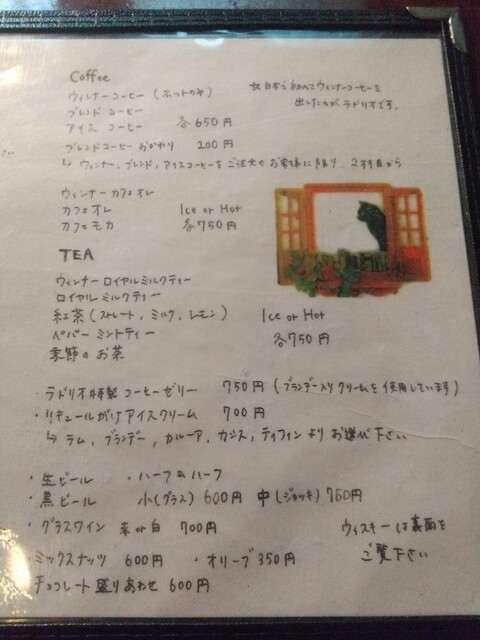 Coffee
ウィンナーコーヒー (ホットのみ)
☆日本で初めてウィンナーコーヒーを
出したのがラドリオです。
ブレンドコーヒー
アイスコーヒー 各650円
ブレンドコーヒーおかわり 200円
↳ ウィンナー、ブレンド、アイスコーヒーをご注文のお客様に限り、2杯目から
ウィンナーカフェオレ
カフェオレ Ice or Hot
カフェモカ 各750円
TEA
ウィンナーロイヤルミルクティー
ロイヤルミルクティー
紅茶(ストレート,ミルク,レモン) Ice or Hot
ペパーミントティー 各750円
季節のお茶
ラドリオ特製コーヒーゼリー 750円 (ブランデー入りクリームを使用しています)
・リキュールがけアイスクリーム 700円
↳ ラム,ブランデー,カルーア,カシス,ティフィンよりお選び下さい
・生ビール ・ハーフ&ハーフ
・黒ビール 小(グラス)600円 中(ジョッキ)750円
・グラスワイン 赤or白 700円
ウィスキーは裏面を
ご覧下さい
ミックスナッツ 600円 ・オリーブ350円
チョコレート盛りあわせ 600円